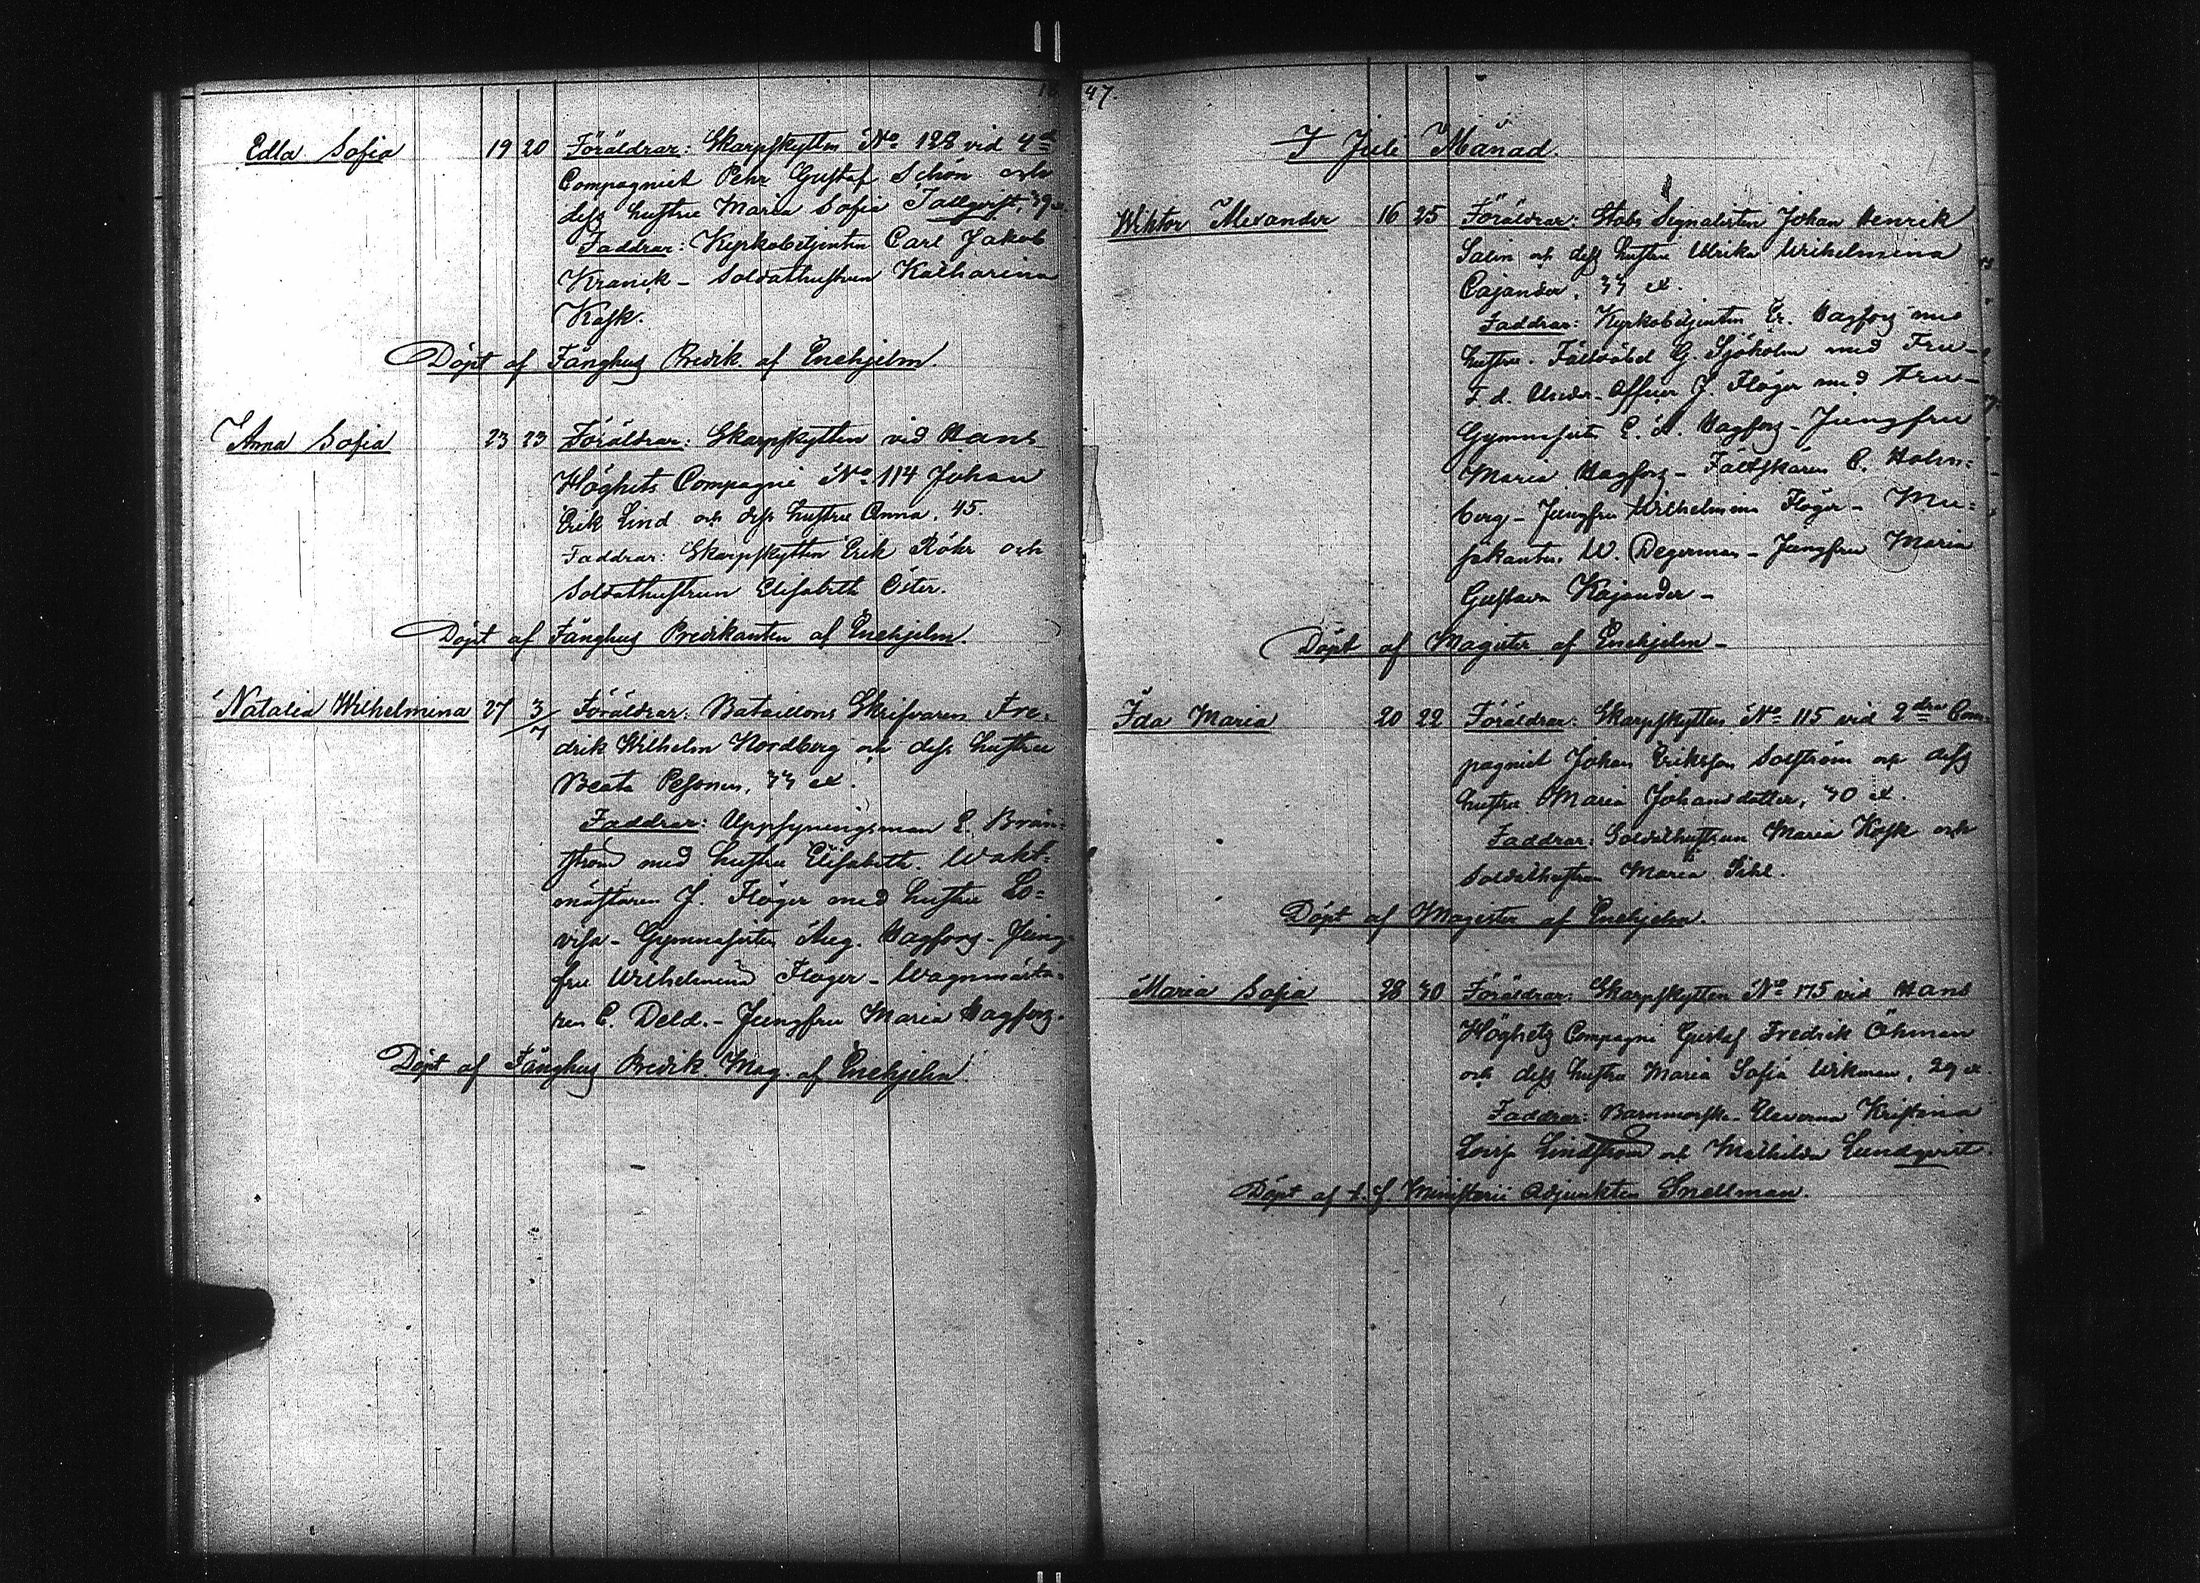 18
Edla Sofia 19 20 Föräldrar: Skarpskytten No 128 vid 4de
Compagniet Pehr Gustaf Schön och
dess hustru Maria Sofia Tallqvist, 39 år.
Faddrar: Kyrkobetjenten Carl Jakob
Kranik - Soldathustrun Katharina
Kask.
Döpt af Fånghus Predik. af Enehjelm.
Anna Sofia 23 23 Föräldrar: Skarpskytten vid Hans
Höghets Compagnie No 114 Johan
Erik Lind och dess hustru Anna, 45.
Faddrar: Skarpskytten Erik Röhr och
Soldathustrun Elisabeth Öster.
Döpt af Fånghus Predikanten af Enehjelm.
Natalia Wilhelmina 27 3/7 Föräldrar: Bataillons Skrifvaren Fre-
drik Wilhelm Nordberg och dess hustru
Beata Pesonen, 33 år.
Faddrar: Uppsyningsman E. Brän-
ström med hustru Elisabeth. Wakt-
mästaren J. Flöger med hustru Lo-
visa - Gymnasisten Aug. Hagfors - Jung-
fru Wilhelmina Flöger - Wagnmästa-
ren C. Deld. - Jungfru Maria Hagfors.
Döpt af Fånghus Predik. Mag. af Enehjelm
47.
I Juli Månad.
Wiktor Alexander 16 25 Föräldrar: Stabs Signalisten Johan Henrik
Salin och dess hustru Ulrika Wilhelmina
Cajander, 33 år.
Faddrar: Kyrkobetjenten Er. Hagfors med
hustru. G. Sjöholm med Fru -
F. d. Under-Officer J. Flöger med Fru -
Gymnasisten E. A. Hagfors - Jungfru
Maria Hagfors - Fältskären C. Holm-
berg - Jungfru Wilhelmina Flöger - Mu-
sikanten W. Degerman - Jungfru Maria
Gustava Kajander -
Döpt af Magister af Enehjelm -
Ida Maria 20 22 Föräldrar: Skarpskytten No 115 vid 2dra Com-
pagniet Johan Eriksson Solström och dess
hustru Maria Johansdotter, 30 år.
Faddrar: Soldathustrun Maria Kask och
Soldathustrun Maria
Döpt af Magister af Enehjelm.
Maria Sofia 28 30 Föräldrar: Skarpskytten No 175 vid Hans
Höghets Compagni Gustaf Fredrik Öhman
och dess hustru Maria Sofia Wikman, 29 år.
Faddrar: Barnmorske-Eleverna Kristina
Lovisa Lindström och Mathilda Lundqvist.
Döpt af t. f Ministerii Adjunkten Snellman.